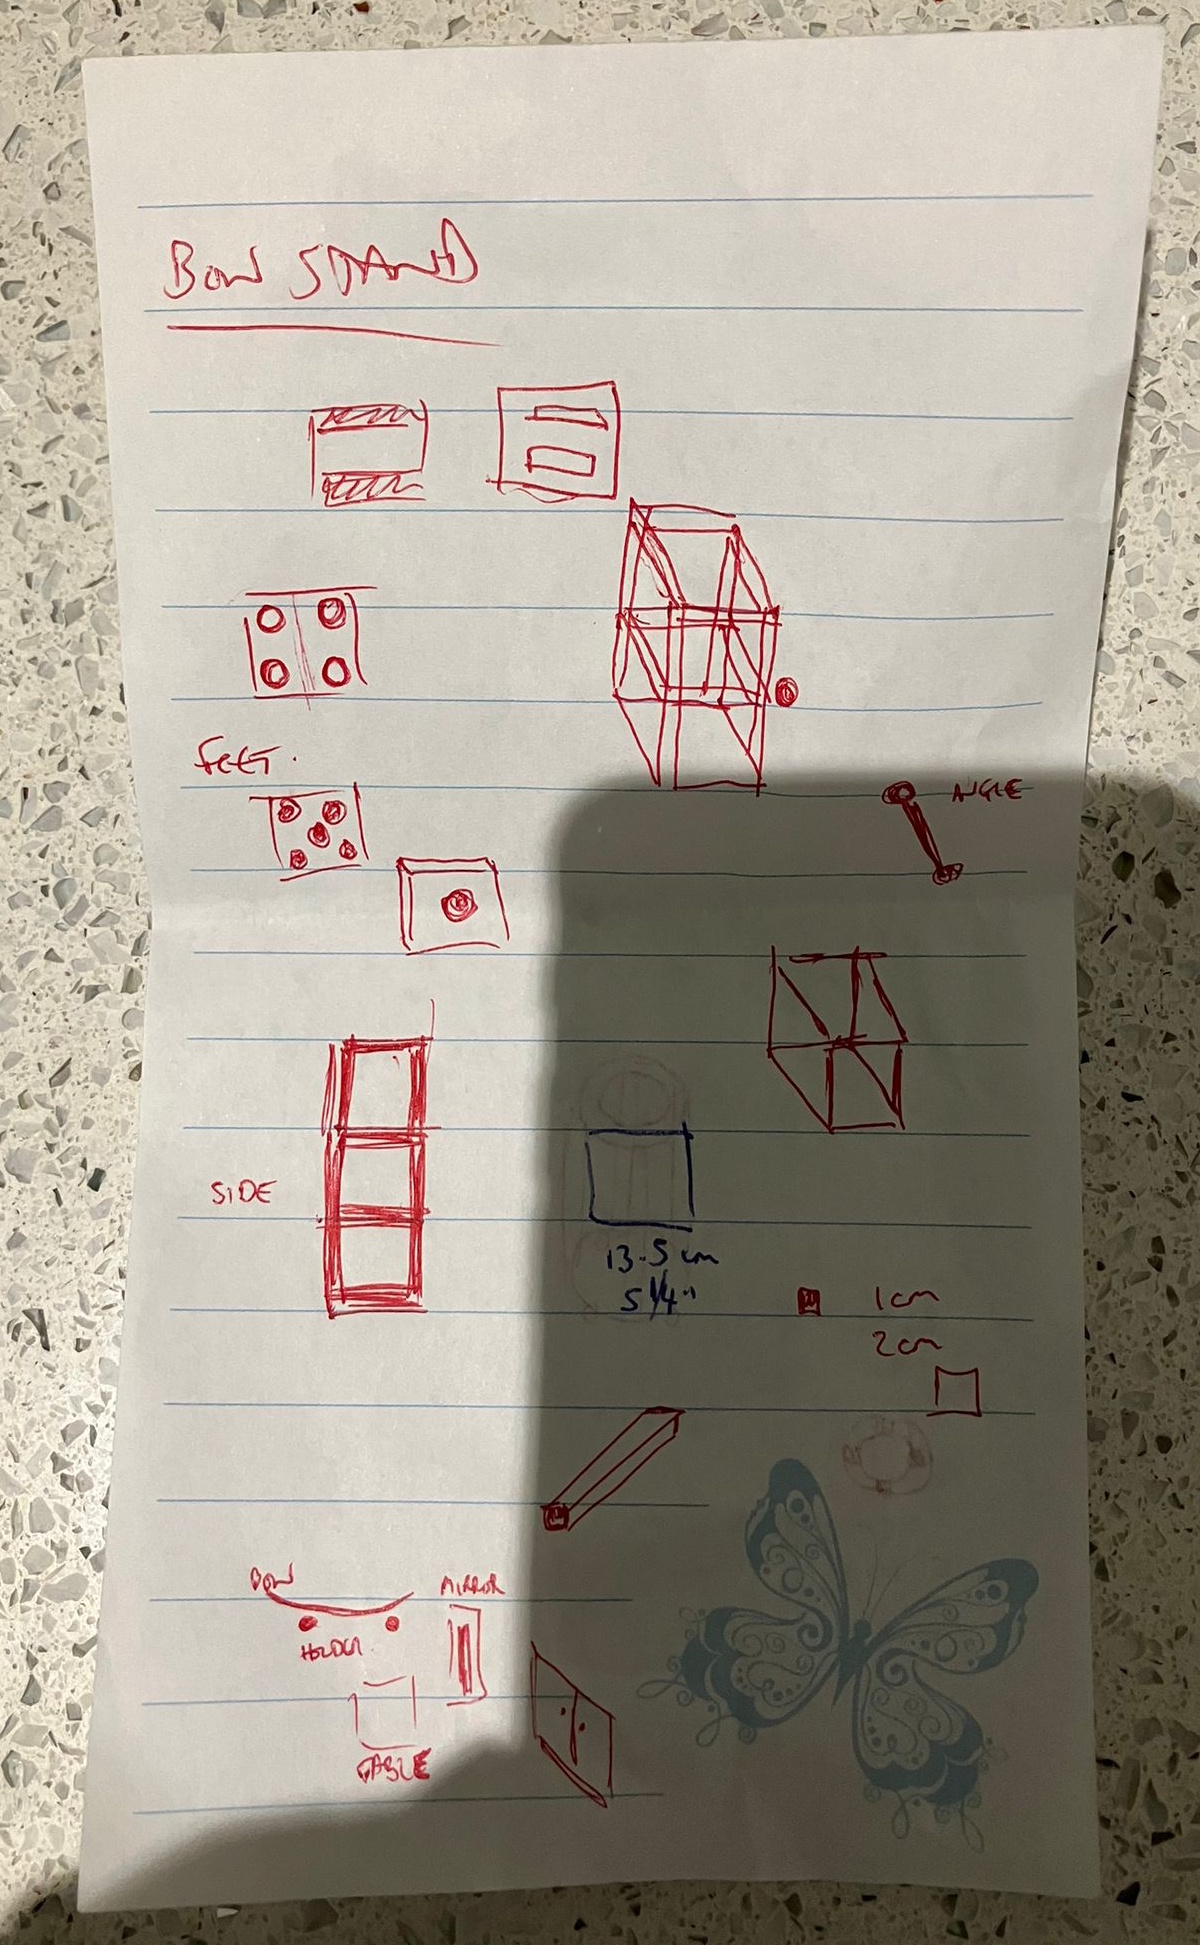 BOW STAND
FEET.
ANGLE
SIDE
13.5 cm
5 1/4"
1cm
2cm
BOW
MIRROR
HOLDER
TABLE